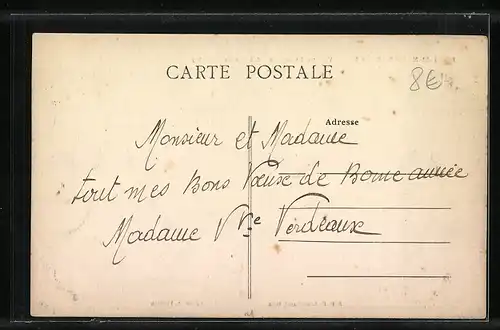 CARTE POSTALE
8€
Adresse
Monsieur et Madame
tout mes Bons Vœux de Bonne année
Madame Vve Verdeaux